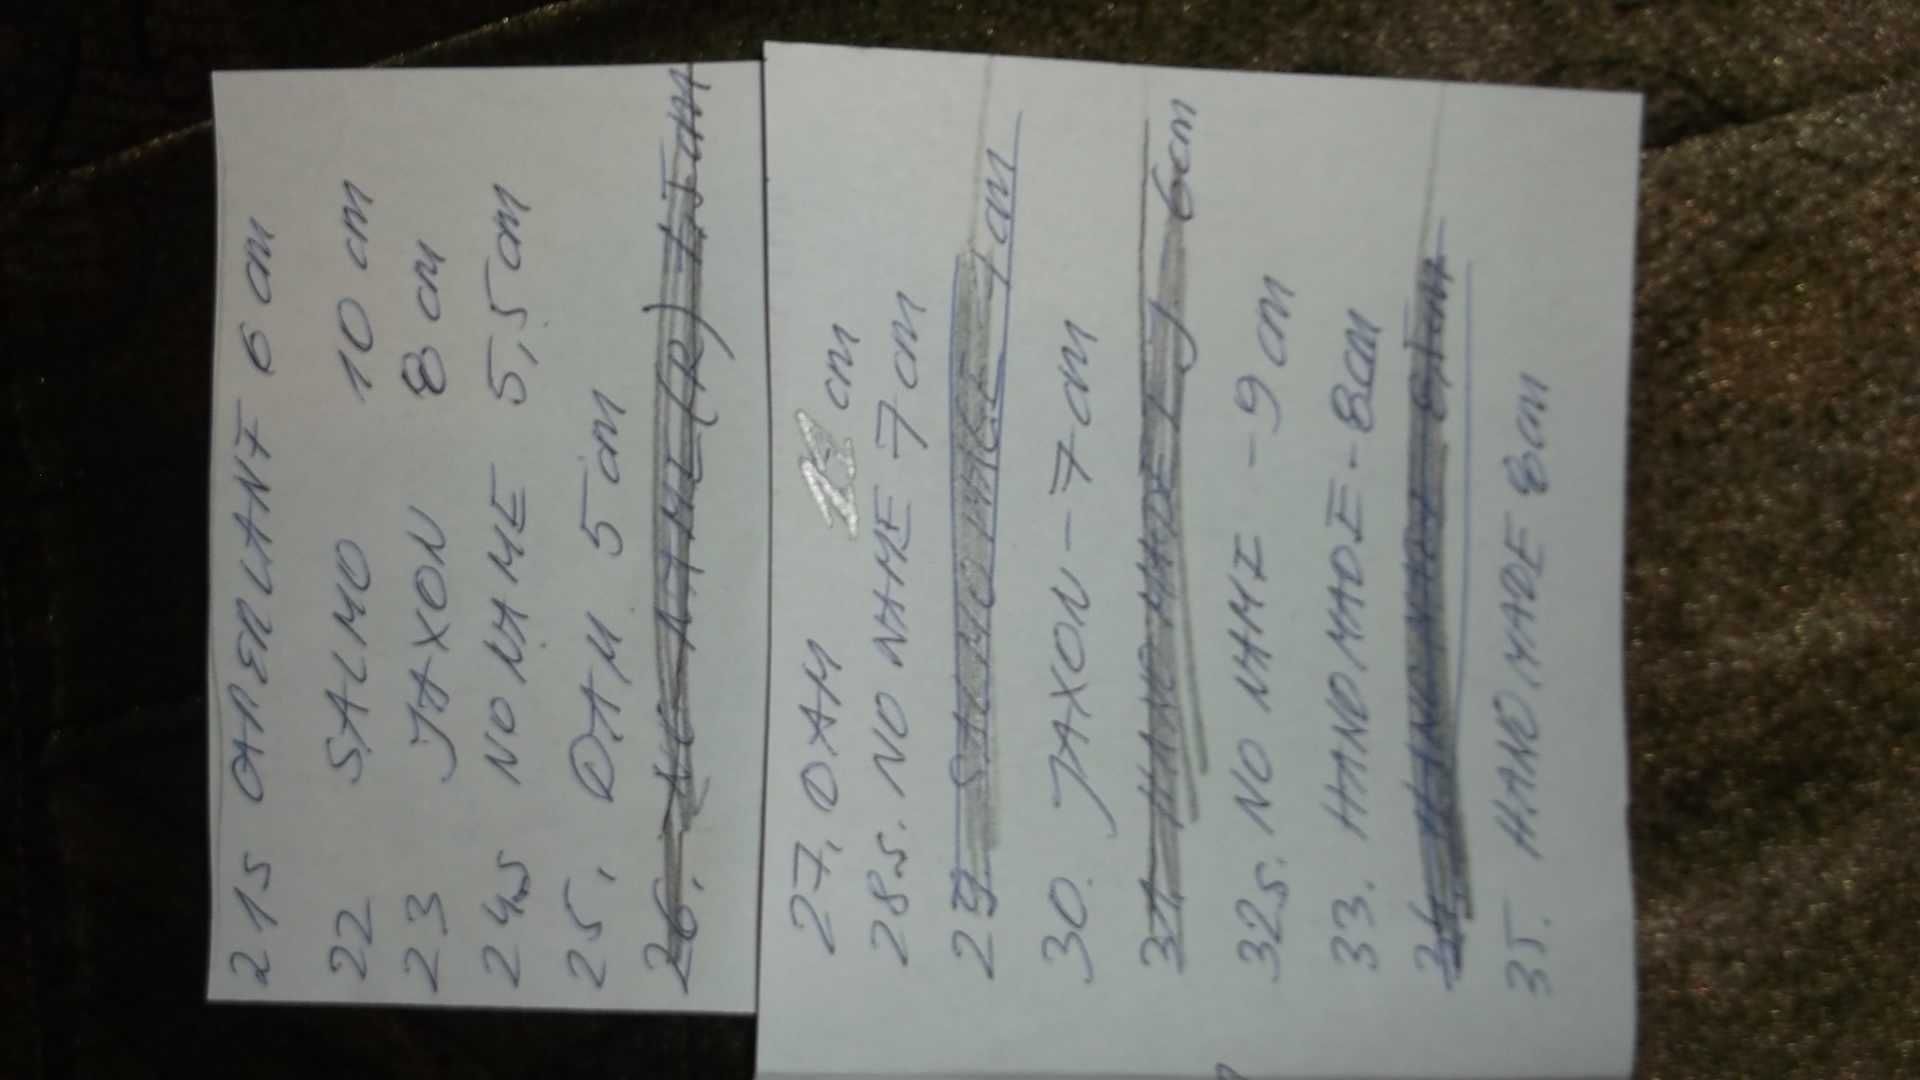 21s OAPERLANT 6 cm
22 SALMO 10 cm
23 JAXON 8 cm
24s NO NAME 5,5 cm
25. DAM 5 cm
26.
27. DAM cm
28s. NO NAME 7 cm
29 SALMO 7 cm
30. JAXON - 7 cm
31 HANDMADE 6cm
32s. NO NAME - 9 cm
33. HANDMADE - 8cm
34 HANDMADE
35. HANDMADE 8cm